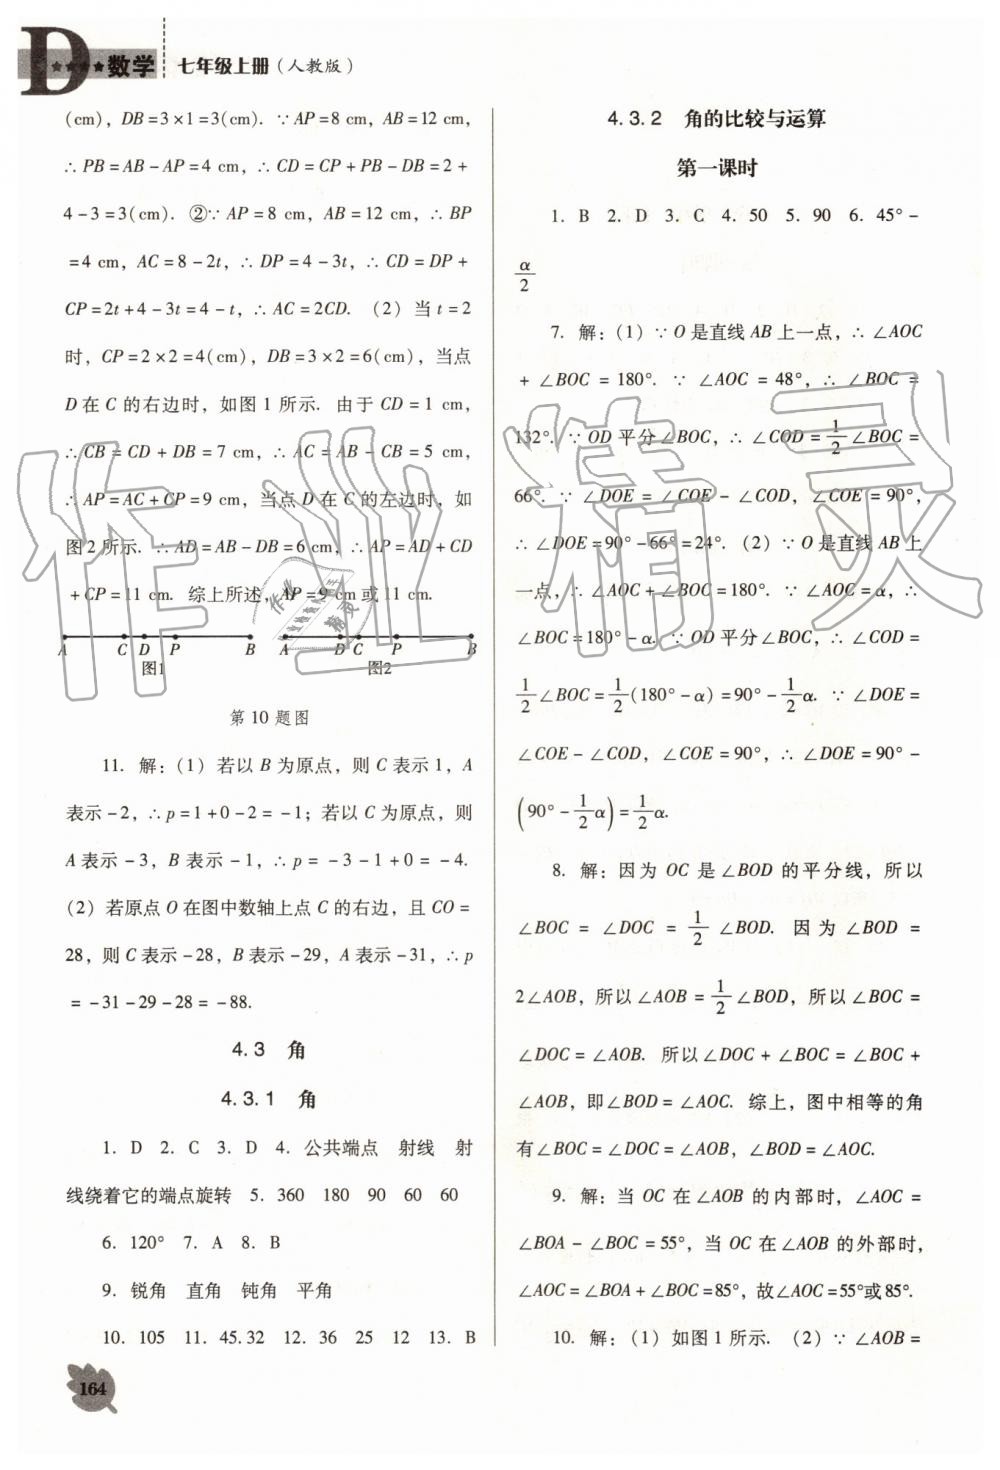 D ★★★★ 数学 七年级上册（人教版）
(cm)，DB=3×1=3(cm). ∵AP=8 cm，AB=12 cm，
∴PB=AB-AP=4 cm，∴CD=CP+PB-DB=2+
4-3=3(cm). ②∵AP=8 cm，AB=12 cm，∴BP
=4 cm，AC=8-2t，∴DP=4-3t，∴CD=DP+
CP=2t+4-3t=4-t，∴AC=2CD. （2）当 t=2
时，CP=2×2=4(cm)，DB=3×2=6(cm)，当点
D 在 C 的右边时，如图 1 所示. 由于 CD=1 cm，
∴CB=CD+DB=7 cm，∴AC=AB-CB=5 cm，
∴AP=AC+CP=9 cm，当点 D 在 C 的左边时，如
图2 所示. ∴AD=AB-DB=6 cm，∴AP=AD+CD
+CP=11 cm. 综上所述，AP=9 cm 或 11 cm.
A C D P B A D C P B
图1 图2
第 10 题图
11. 解：（1）若以 B 为原点，则 C 表示 1，A
表示-2，∴p=1+0-2=-1；若以 C 为原点，则
A 表示-3，B 表示-1，∴p=-3-1+0=-4.
（2）若原点 O 在图中数轴上点 C 的右边，且 CO=
28，则 C 表示-28，B 表示-29，A 表示-31，∴p
=-31-29-28=-88.
4.3 角
4.3.1 角
1. D 2. C 3. D 4. 公共端点 射线 射
线绕着它的端点旋转 5. 360 180 90 60 60
6. 120° 7. A 8. B
9. 锐角 直角 钝角 平角
10. 105 11. 45.32 12. 36 25 12 13. B
164
4.3.2 角的比较与运算
第一课时
1. B 2. D 3. C 4. 50 5. 90 6. 45°-
α/2
7. 解：（1）∵O 是直线 AB 上一点，∴∠AOC
+∠BOC=180°. ∵∠AOC=48°，∴∠BOC=
132°. ∵OD 平分∠BOC，∴∠COD=1/2∠BOC=
66°. ∵∠DOE=∠COE-∠COD，∠COE=90°，
∴∠DOE=90°-66°=24°.（2）∵O 是直线 AB 上
一点，∴∠AOC+∠BOC=180°. ∵∠AOC=α，∴
∠BOC=180°-α. ∵OD 平分∠BOC，∴∠COD=
1/2∠BOC=1/2(180°-α)=90°-1/2α. ∵∠DOE=
∠COE-∠COD，∠COE=90°，∴∠DOE=90°-
(90°-1/2α)=1/2α.
8. 解：因为 OC 是∠BOD 的平分线，所以
∠BOC=∠DOC=1/2∠BOD. 因为∠BOD=
2∠AOB，所以∠AOB=1/2∠BOD，所以∠BOC=
∠DOC=∠AOB. 所以∠DOC+∠BOC=∠BOC+
∠AOB，即∠BOD=∠AOC. 综上，图中相等的角
有∠BOC=∠DOC=∠AOB，∠BOD=∠AOC.
9. 解：当 OC 在∠AOB 的内部时，∠AOC=
∠BOA-∠BOC=55°，当 OC 在∠AOB 的外部时，
∠AOC=∠BOA+∠BOC=85°，故∠AOC=55°或85°.
10. 解：（1）如图 1 所示.（2）∵∠AOB=
作业精灵
作业精灵